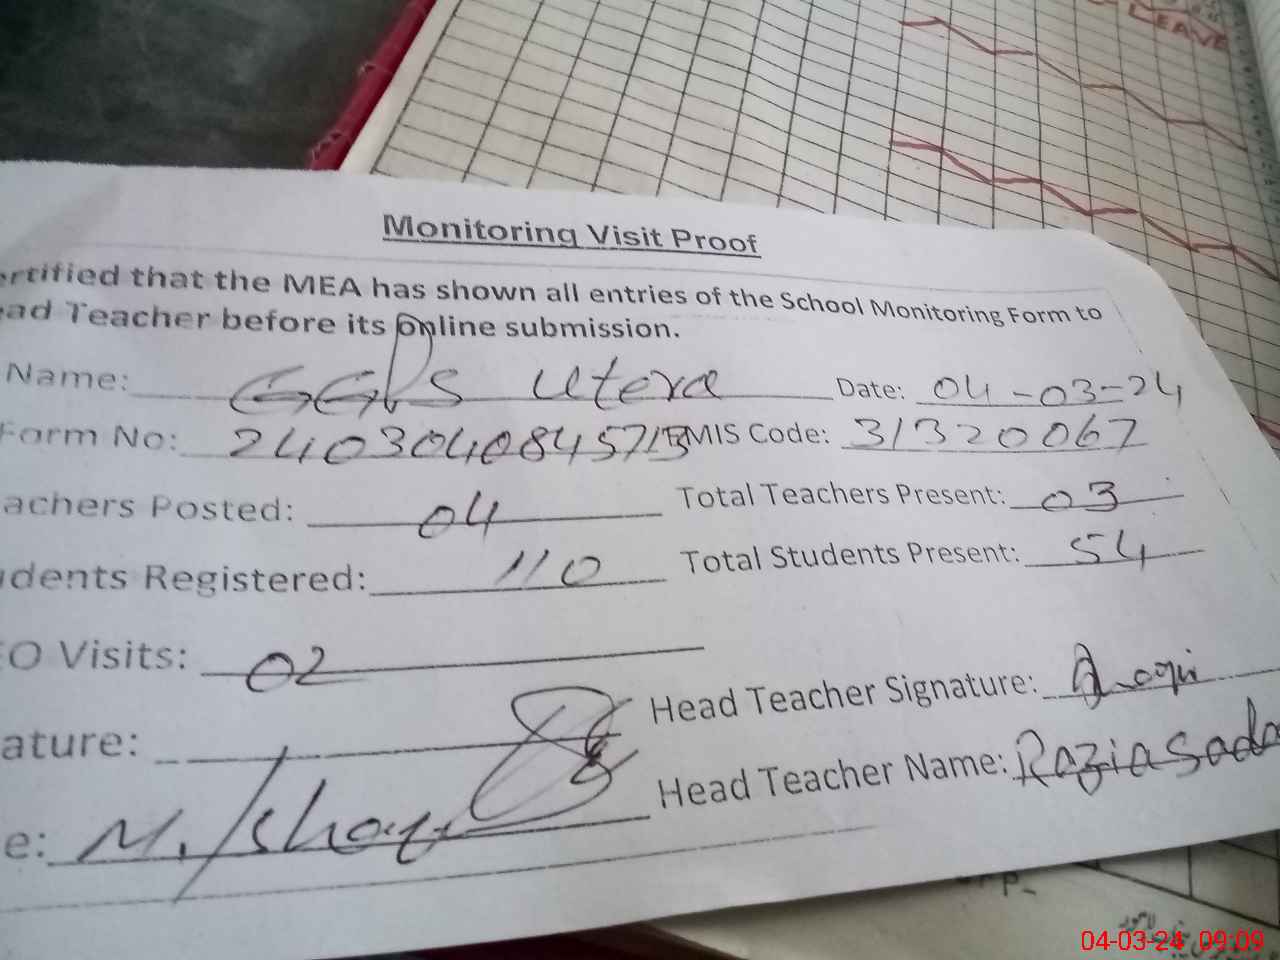 LEAVE
Monitoring Visit Proof
ertified that the MEA has shown all entries of the School Monitoring Form to
ad Teacher before its online submission.
Name: GGPS Utera Date: 04-03-24
Form No: 240304084571 MIS Code: 31320067
achers Posted: 04 Total Teachers Present: 03
dents Registered: 110 Total Students Present: 54
O Visits: 02
ature: Head Teacher Signature:
e: M. Ishaq Head Teacher Name: Razia Sada
04-03-24 09:09